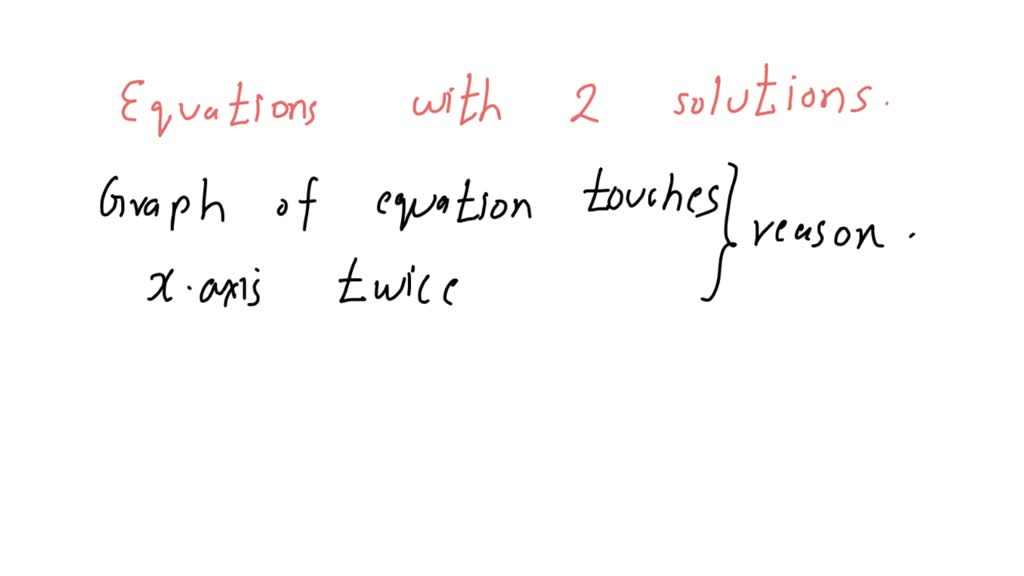 Equations with 2 solutions.
Graph of equation touches
x.axis twice
reason.